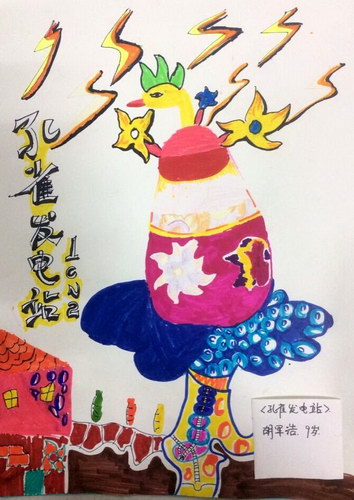 孔雀发电站
1cn2
<孔雀发电站>
胡军浩. 9岁.